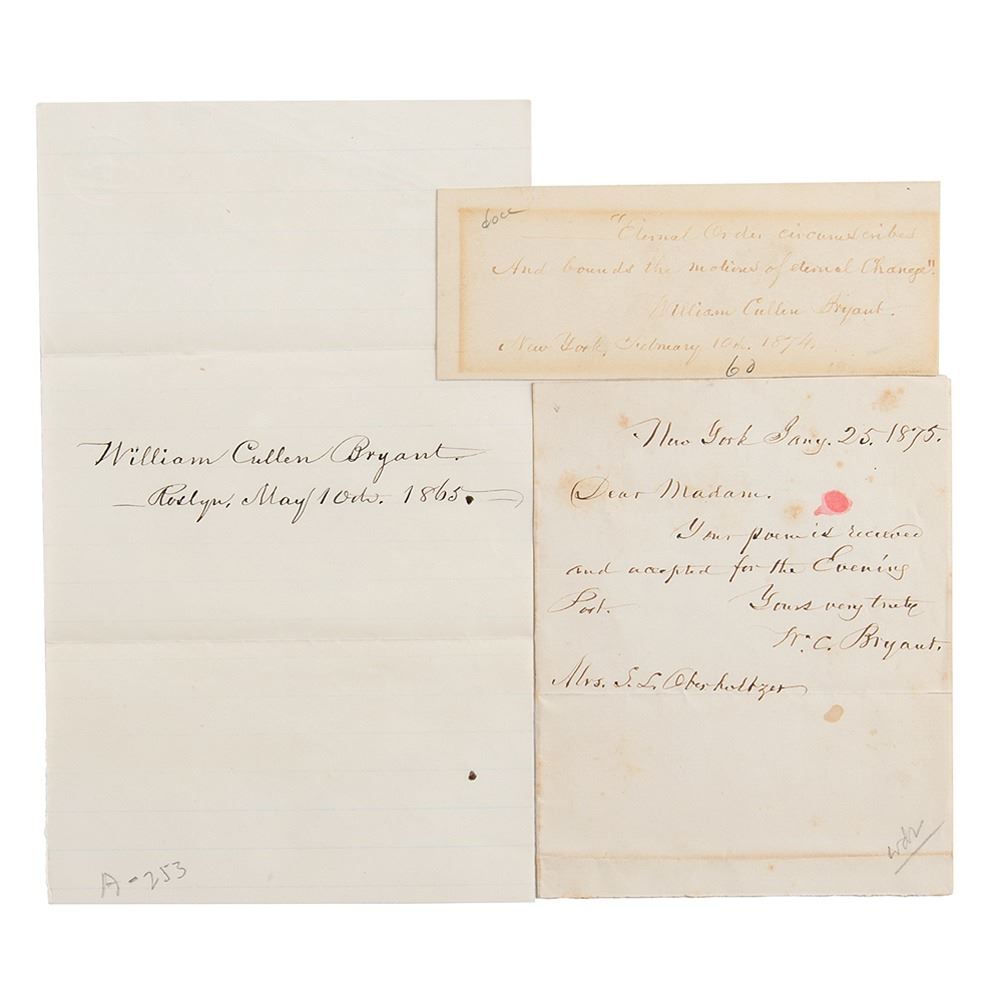 William Cullen Bryant.
Roslyn, May 10th. 1865.
A-253
"Eternal Order circumscribes
And bounds the motions of eternal Change".
William Cullen Bryant.
New York, February 10th. 1874.
60
New York Jany. 25. 1875.
Dear Madam.
Your poem is received
and accepted for the Evening
Post. Yours very truly
W. C. Bryant.
Mrs. S. L. Oberholtzer